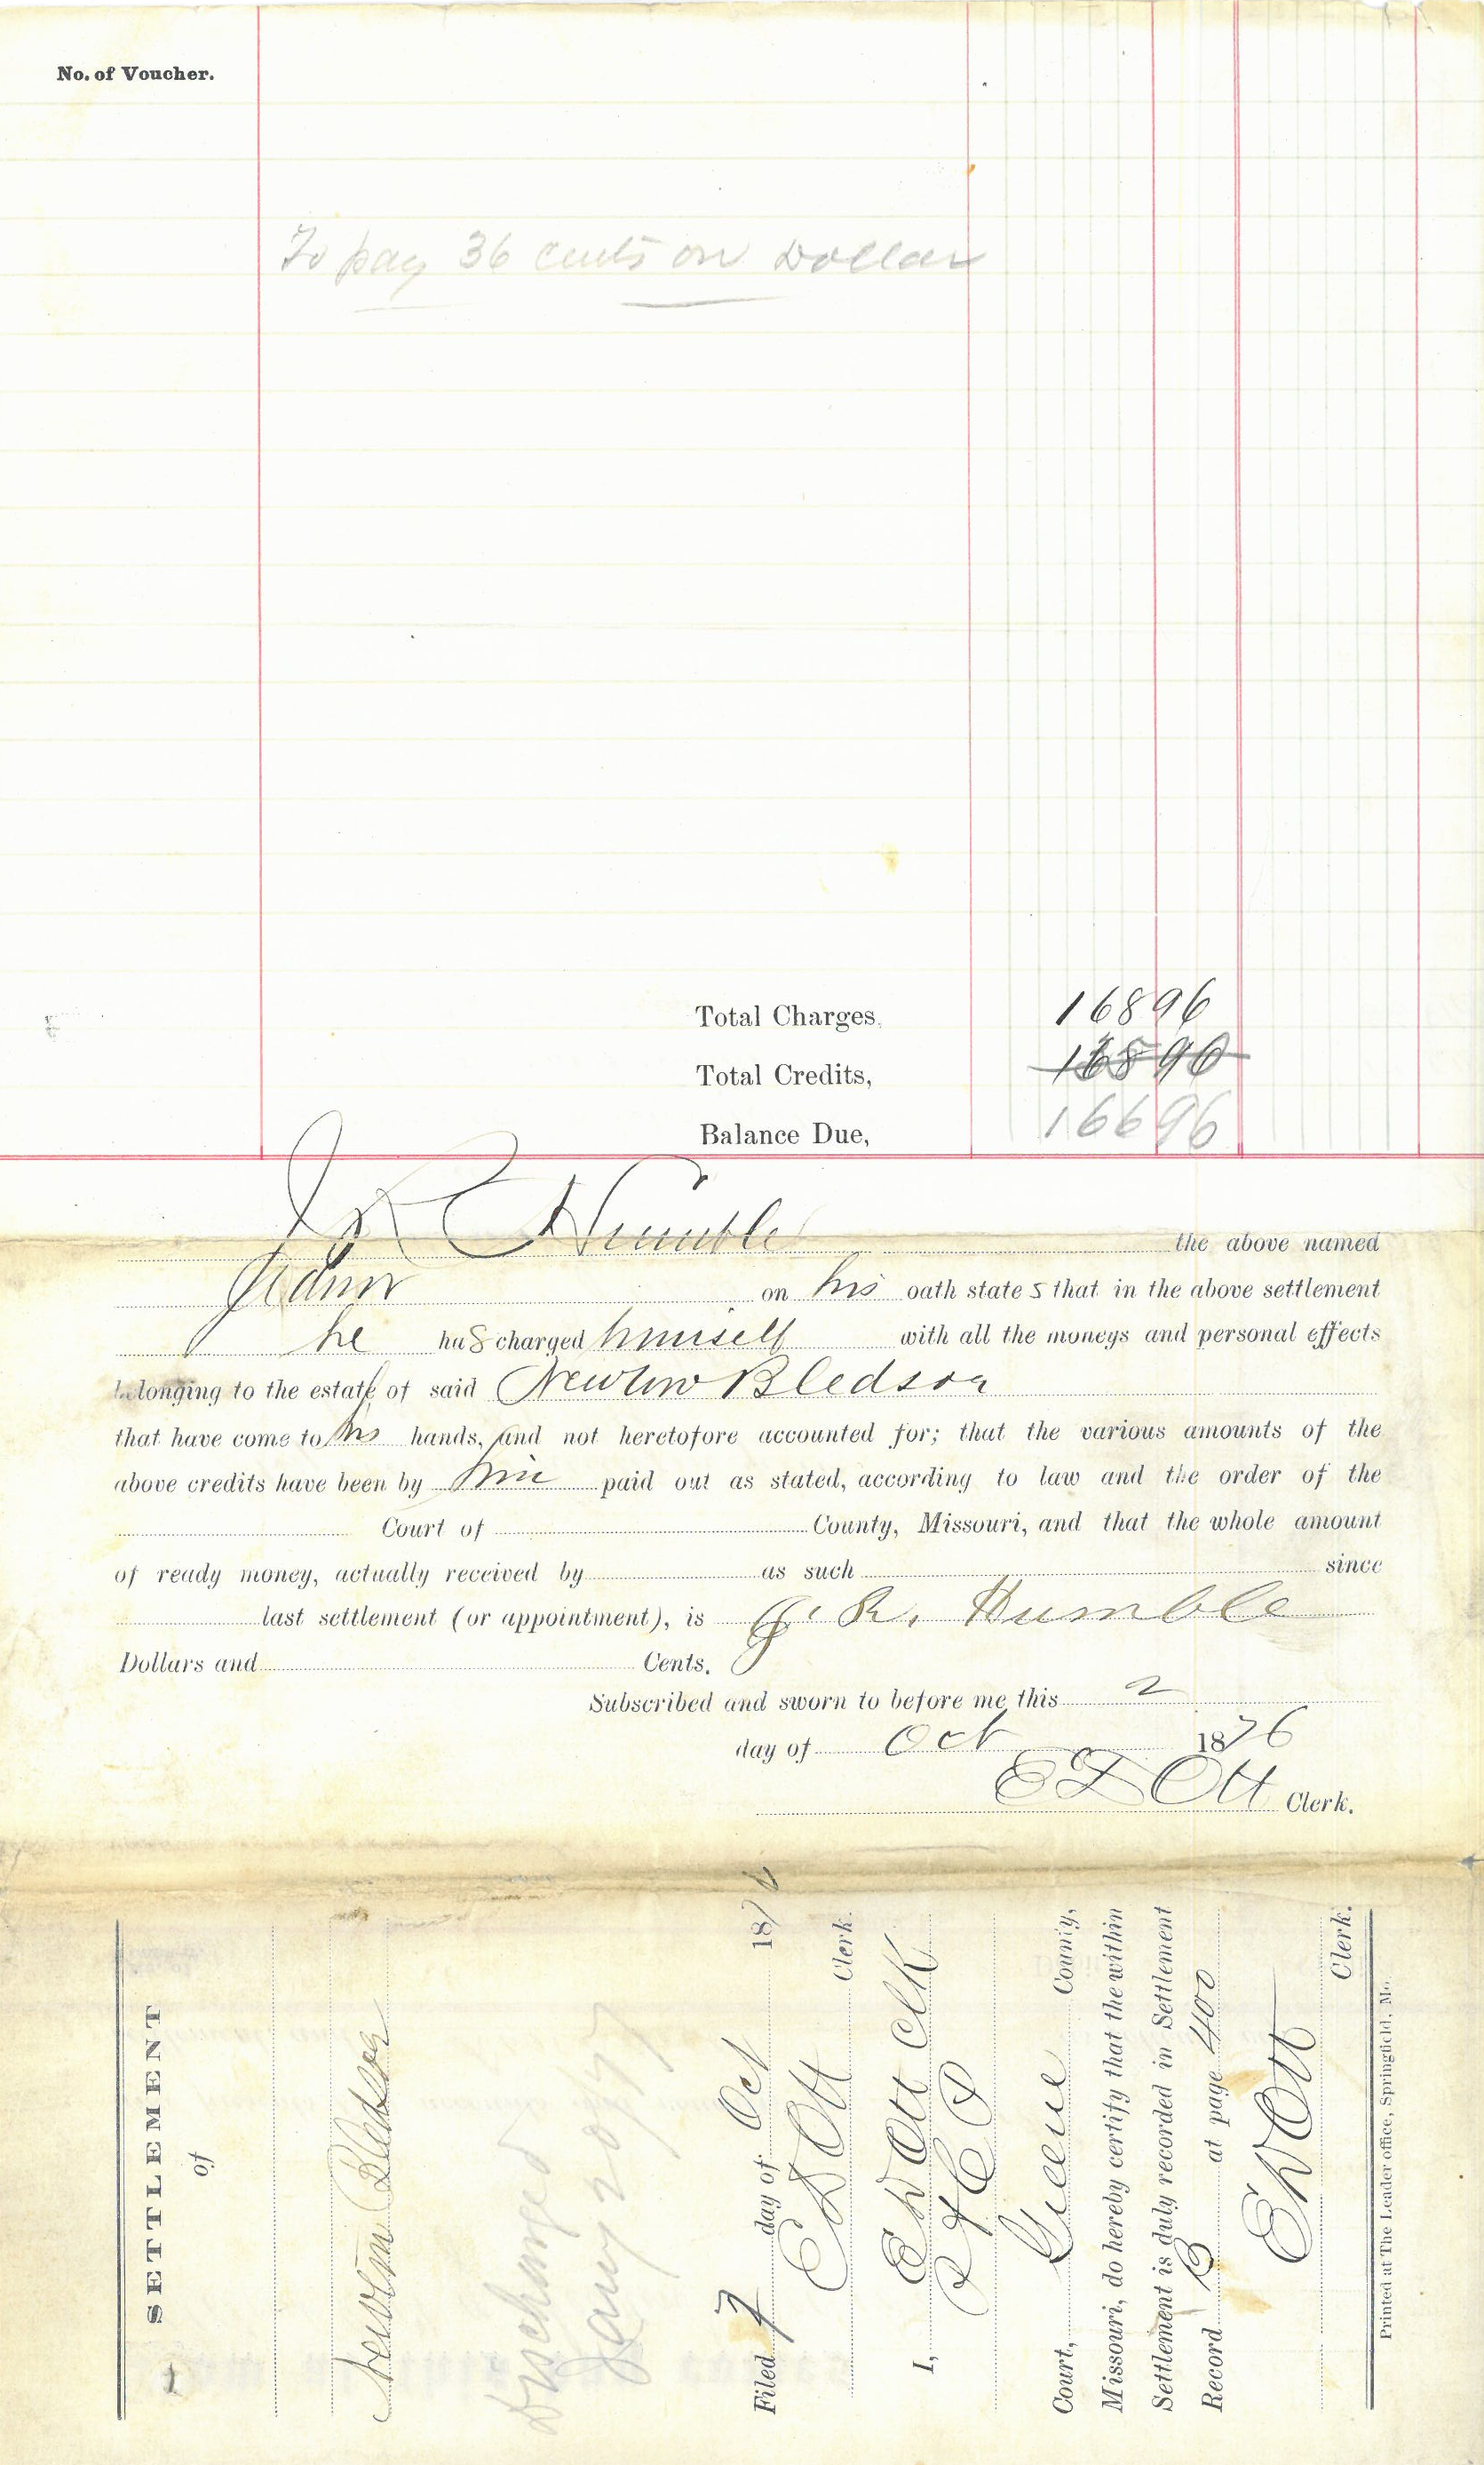 No. of Voucher.
To pay 36 cents on Dollar
Total Charges, 168 96
Total Credits, 168 96
Balance Due, 166 96
J R Humble the above named
Admr on his oath state s that in the above settlement
he has charged himself with all the moneys and personal effects
belonging to the estate of said Newton Bledsoe
that have come to his hands, and not heretofore accounted for; that the various amounts of the
above credits have been by him paid out as stated, according to law and the order of the
Court of County, Missouri, and that the whole amount
of ready money, actually received by as such since
last settlement (or appointment), is J. R. Humble
Dollars and Cents.
Subscribed and sworn to before me this 2
day of Oct 1876
E D Ott Clerk.
1
SETTLEMENT
of
Newton Bledsoe
Discharged
Jany 20 1877
Filed 7 day of Oct 1876
E D Ott Clerk.
I, E D Ott Clk
Court, Greene County,
Missouri, do hereby certify that the within
Settlement is duly recorded in Settlement
Record B at page 400
E D Ott
Clerk.
Printed at The Leader office, Springfield, Mo.